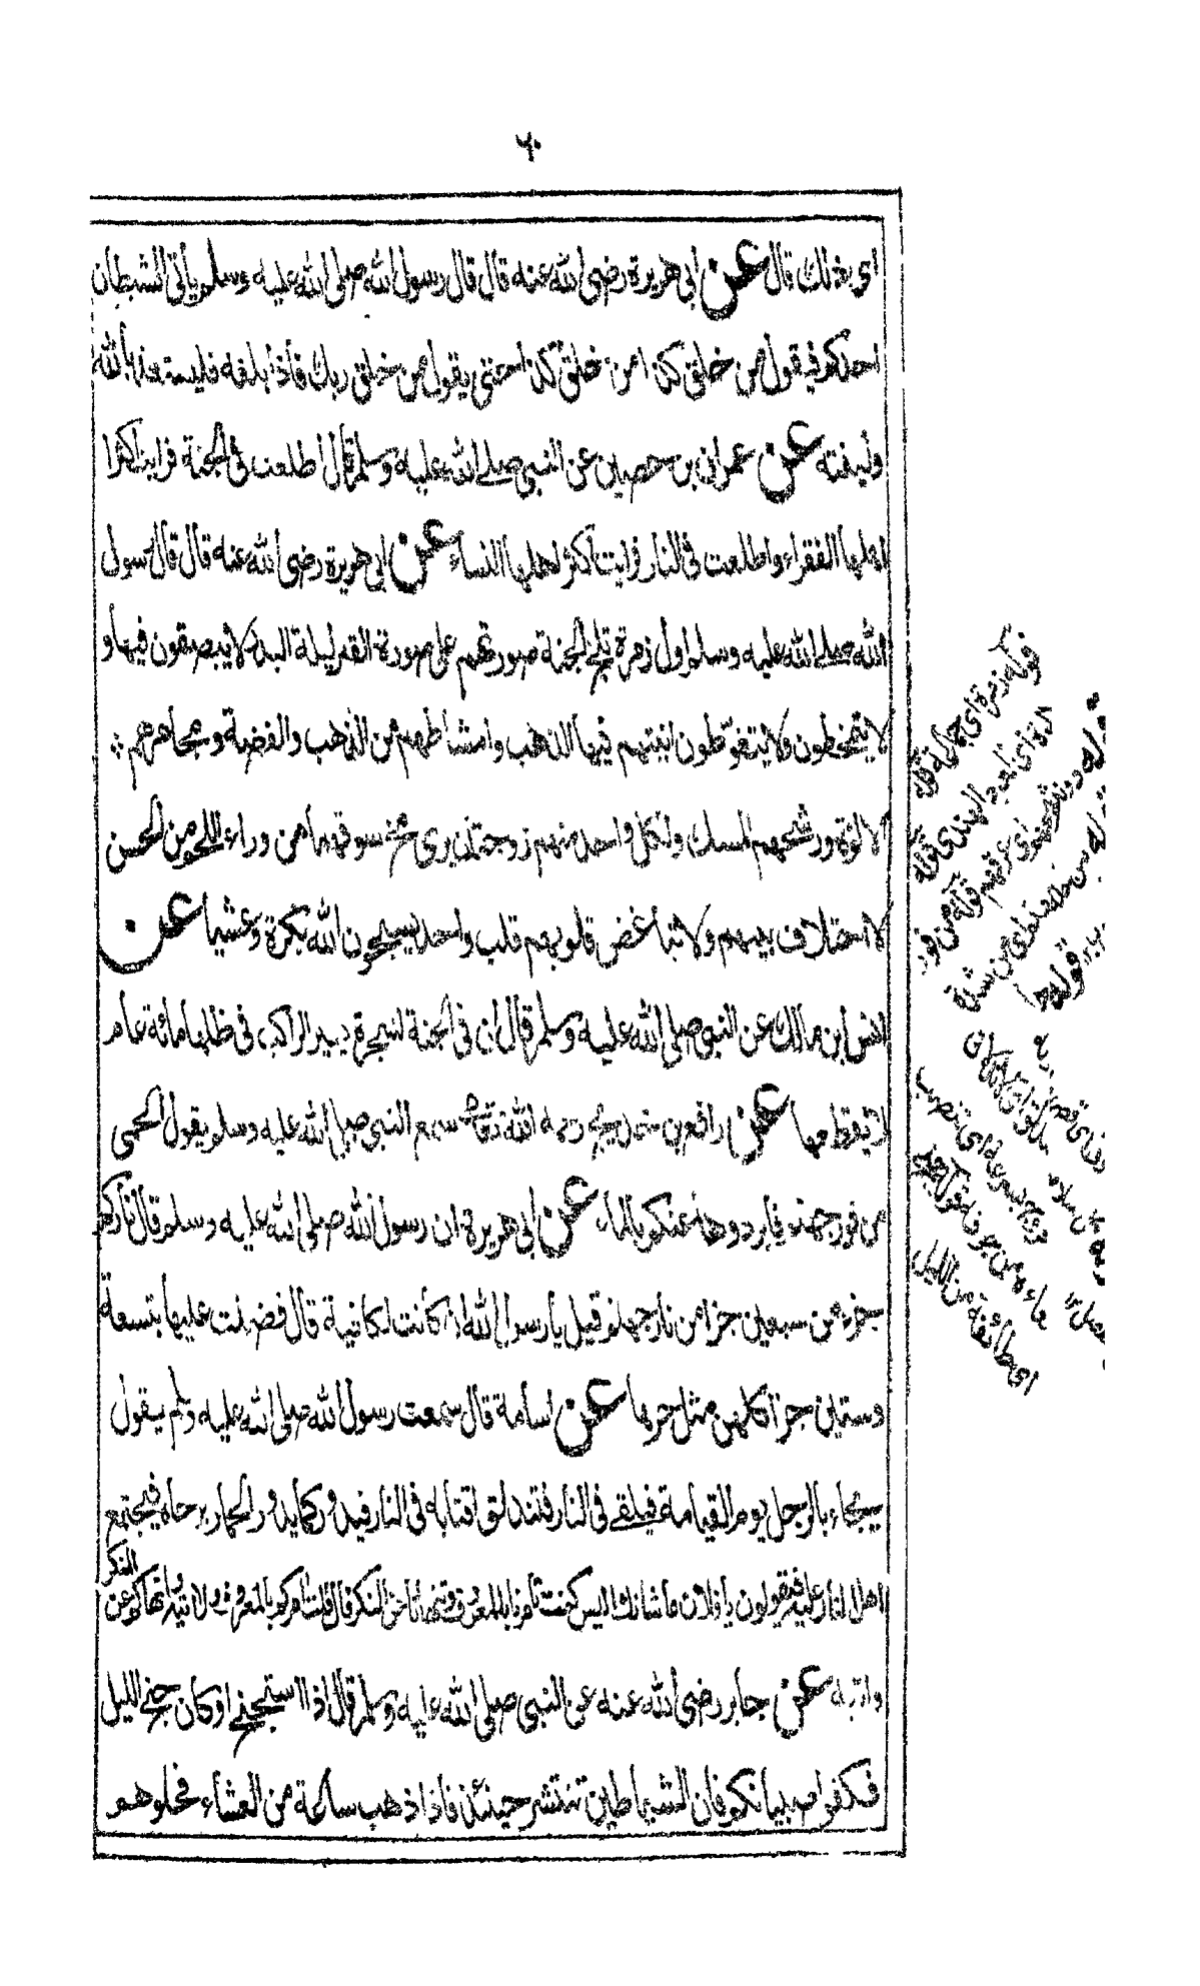 ٦٠
اى بذلك قال عن ابي هريرة رضي الله عنه قال قال رسول الله صلى الله عليه وسلم يأتى الشيطان
احدكم فيقول من خلق كذا من خلق كذا حتى يقول من خلق ربك فاذا بلغه فليستعذ بالله
ولينته عن عمران بن حصين عن النبي صلى الله عليه وسلم قال اطلعت فى الجنة فرايت اكثر
اهلها الفقراء واطلعت فى النار فرايت اكثر اهلها النساء عن ابي هريرة رضي الله عنه قال قال رسول
الله صلى الله عليه وسلم اول زمرة تلج الجنة صورتهم على صورة القمر ليلة البدر لا يبصقون فيها و
لا يمتخطون ولا يتغوطون انيتهم فيها الذهب وامشاطهم من الذهب والفضة ومجامرهم
الالوة ورشحهم المسك ولكل واحد منهم زوجتان يرى مخ سوقهما من وراء اللحم من الحسن
لا اختلاف بينهم ولا تباغض قلوبهم قلب واحد يسبحون الله بكرة وعشيا عن
انس ابن مالك عن النبي صلى الله عليه وسلم قال ان فى الجنة لشجرة يسير الراكب فى ظلها مائة عام
لا يقطعها عن رافع بن خديج رحمه الله تعالى سمع النبي صلى الله عليه وسلم يقول الحمى
من فور جهنم فابردوها عنكم بالماء عن ابي هريرة ان رسول الله صلى الله عليه وسلم قال ناركم
جزء من سبعين جزا من نار جهنم قيل يا رسول الله ان كانت لكافية قال فضلت عليها بتسعة
وستين جزا كلهن مثل حرها عن اسامة قال سمعت رسول الله صلى الله عليه وسلم يقول
يجاء بالرجل يوم القيامة فيلقى فى النار فتندلق اقتابه فى النار فيدور كما يدور الحمار برحاه فيجتمع
اهل النار عليه فيقولون يا فلان ما شانك اليس كنت تامرنا بالمعروف وتنهانا عن المنكر قال كنت امركم بالمعروف ولا اتيه وانهاكم عن المنكر
واتيه عن جابر رضي الله عنه عن النبي صلى الله عليه وسلم قال اذا استجنح او كان جنح الليل
فكفوا صبيانكم فان الشياطين تنتشر حينئذ فاذا ذهب ساعة من العشاء فخلوهم
قوله زمرة اى جماعة قوله
اى طائفة من الليل